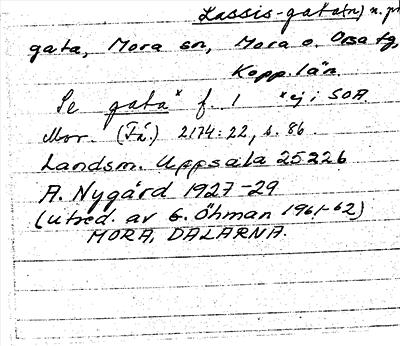 Lassis-gata(n) n. pr
gata, Mora sn, Mora o. Orsa tg,
Kopp. län.
Se gata* f. 1 *ej i SOA
Mor. (Fä.) 2174:22, s. 86
Landsm. Uppsala 25226
A. Nygård 1927-29
(utred. av G. Öhman 1961-62)
MORA, DALARNA.